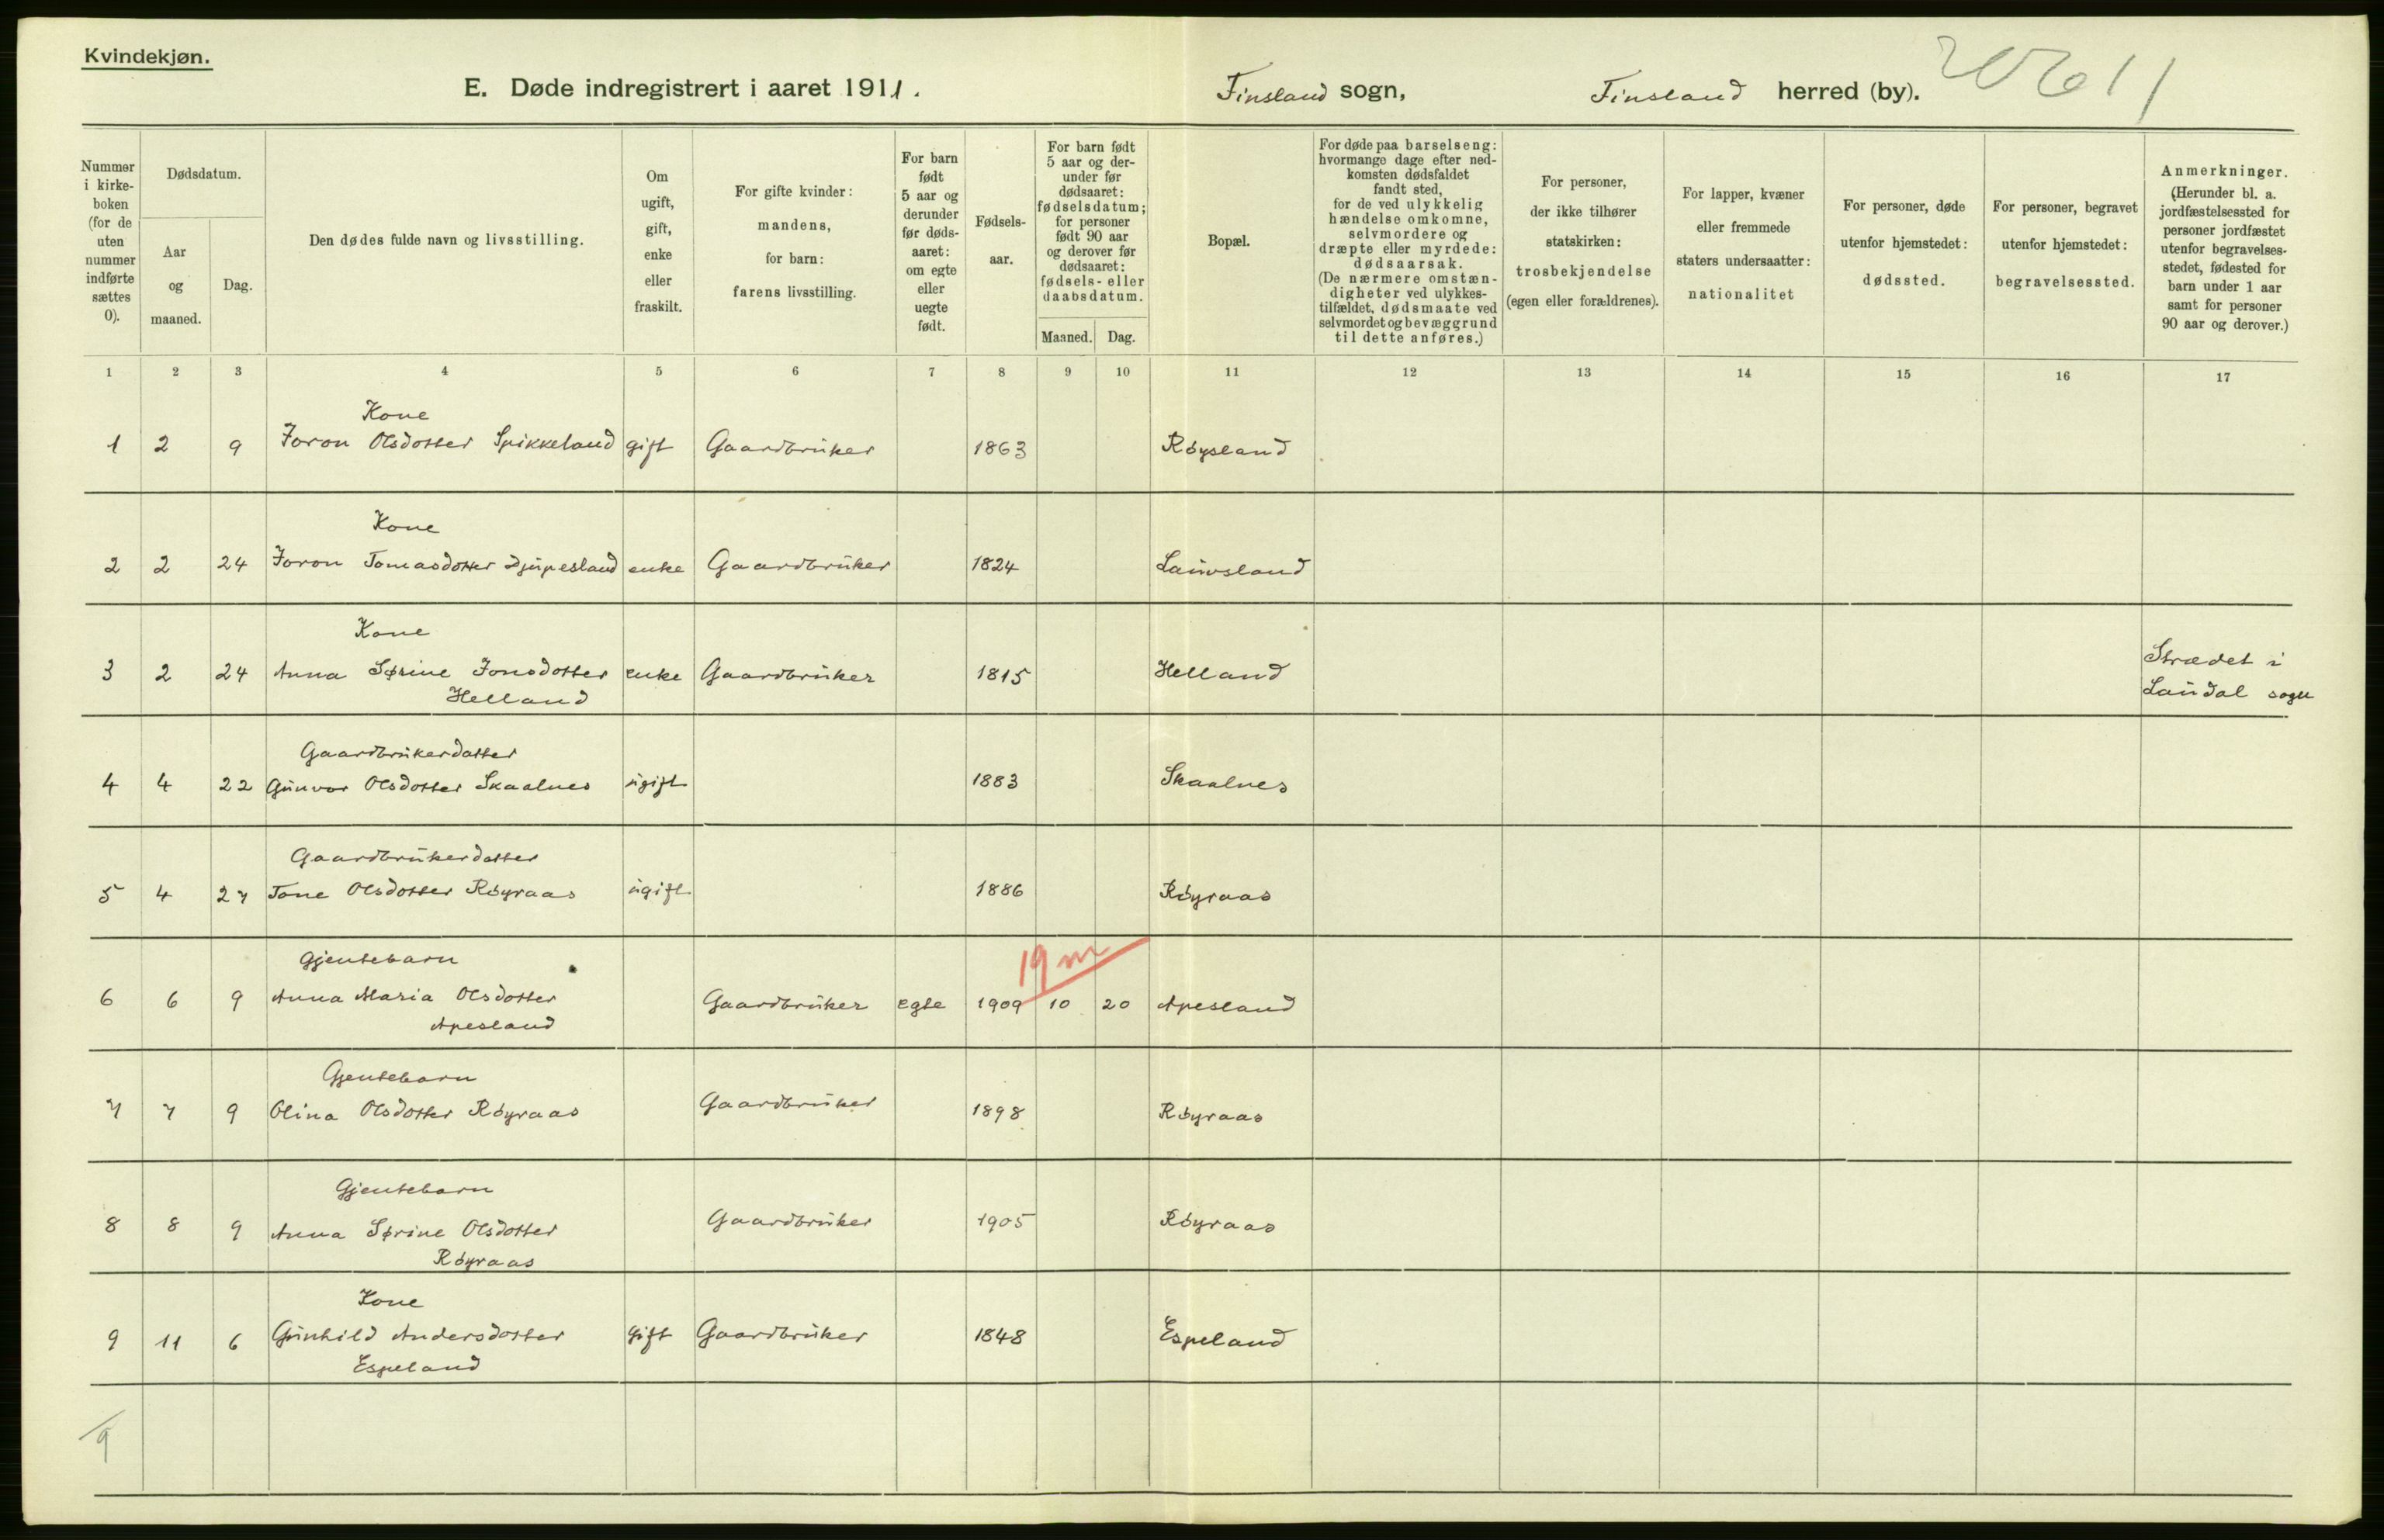 Kvindekjøn.
E. Døde indregistrert i aaret 1911. Finsland sogn, Finsland herred (by).
Nummer i kirke- boken (for de uten nummer indførte sættes 0).
Dødsdatum.
Aar og maaned.
Dag.
Den dødes fulde navn og livsstilling.
Om ugift, gift, enke eller fraskilt.
For gifte kvinder: mandens, for barn: farens livsstilling.
For barn født 5 aar og derunder før døds- aaret: om egte eller uegte født.
Fødsels- aar.
For barn født 5 aar og der- under før dødsaaret: fødselsdatum; for personer født 90 aar og derover før dødsaaret: fødsels- eller daabsdatum.
Maaned. Dag.
Bopæl.
For døde paa barselseng: hvormange dage efter ned- komsten dødsfaldet fandt sted, for de ved ulykkelig hændelse omkomne, selvmordere og dræpte eller myrdede: dødsaarsak. (De nærmere omstæn- digheter ved ulykkes- tilfældet, dødsmaate ved selvmordet og bevæggrund til dette anføres.)
For personer, der ikke tilhører statskirken: trosbekjendelse (egen eller forældrenes).
For lapper, kvæner eller fremmede staters undersaatter: nationalitet
For personer, døde utenfor hjemstedet: dødssted.
For personer, begravet utenfor hjemstedet: begravelsessted.
Anmerkninger. (Herunder bl. a. jordfæstelsessted for personer jordfæstet utenfor begravelses- stedet, fødested for barn under 1 aar samt for personer 90 aar og derover.)
1 2 3 4 5 6 7 8 9 10 11 12 13 14 15 16 17
Kone
1 2 9 Joron Olsdotter Spikkeland gift Gaardbruker 1863 Røysland
Kone
2 2 24 Joron Tomasdotter Djupesland enke Gaardbruker 1824 Lauvsland
Kone
3 2 24 Anna Sørine Jonsdotter enke Gaardbruker 1815 Helland Strædet i
Helland Laudal sogn
Gaardbrukerdatter
4 4 22 Gunvor Olsdotter Skaalnes ugift 1883 Skaalnes
Gaardbrukerdatter
5 4 27 Tone Olsdotter Røyraas ugift 1886 Røyraas
Gjentebarn 19 m
6 6 9 Anna Maria Olsdotter Gaardbruker egte 1909 10 20 Apesland
Apesland
Gjentebarn
7 7 9 Olina Olsdotter Røyraas Gaardbruker 1898 Røyraas
Gjentebarn
8 8 9 Anna Sørine Olsdotter Gaardbruker 1905 Røyraas
Røyraas
Kone
9 11 6 Gunhild Andersdotter gift Gaardbruker 1848 Espeland
Espeland
9